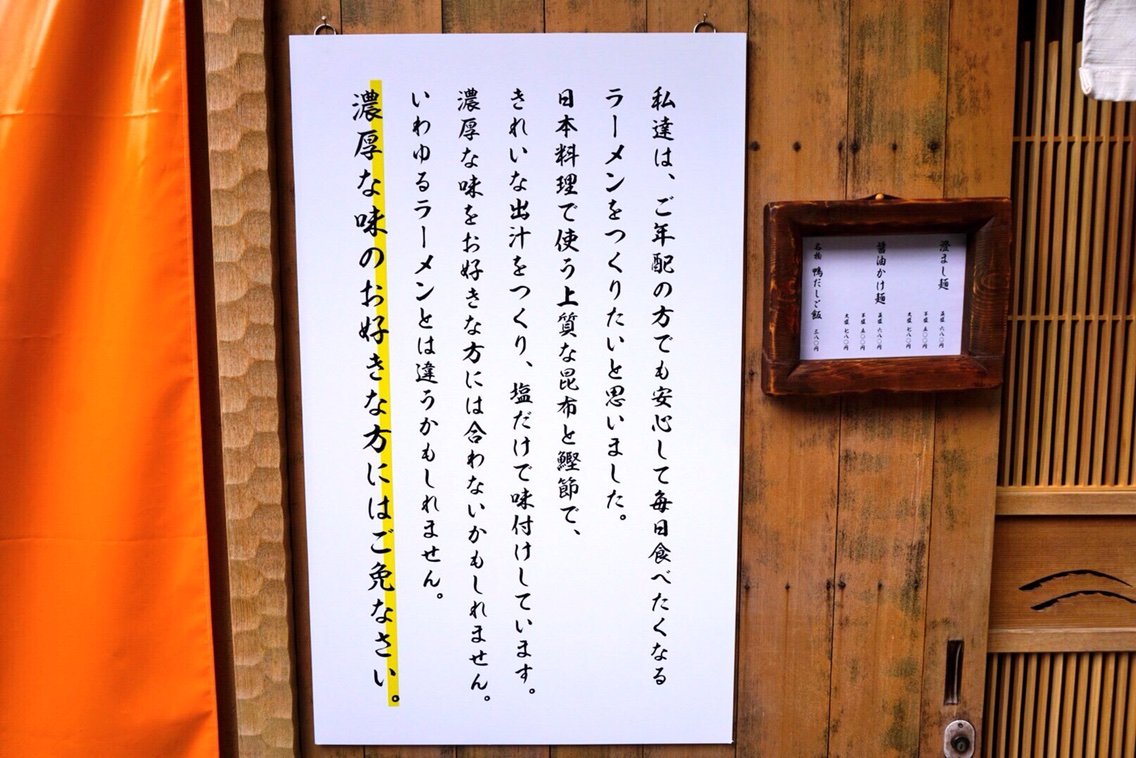 私達は、ご年配の方でも安心して毎日食べたくなる
ラーメンをつくりたいと思いました。
日本料理で使う上質な昆布と鰹節で、
きれいな出汁をつくり、塩だけで味付けしています。
濃厚な味をお好きな方には合わないかもしれません。
いわゆるラーメンとは違うかもしれません。
濃厚な味のお好きな方にはご免なさい。
澄まし麺
並盛 六八〇円
半盛 五〇〇円
大盛 七八〇円
醤油かけ麺
並盛 六八〇円
半盛 五〇〇円
大盛 七八〇円
名物 鴨だしご飯 三八〇円